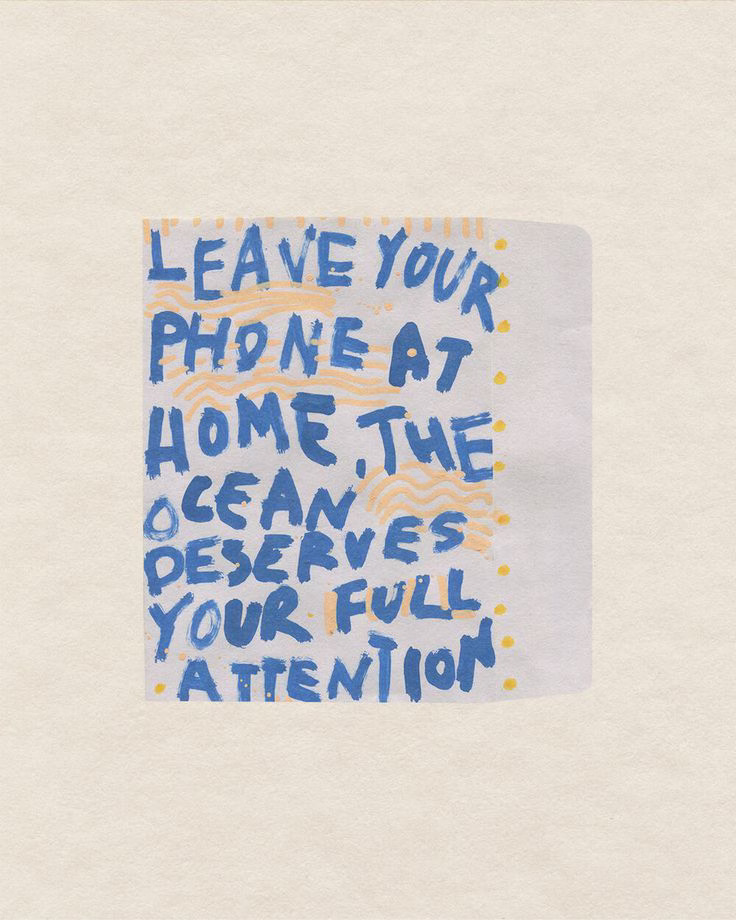 LEAVE YOUR
PHONE AT
HOME, THE
OCEAN
DESERVES
YOUR FULL
ATTENTION